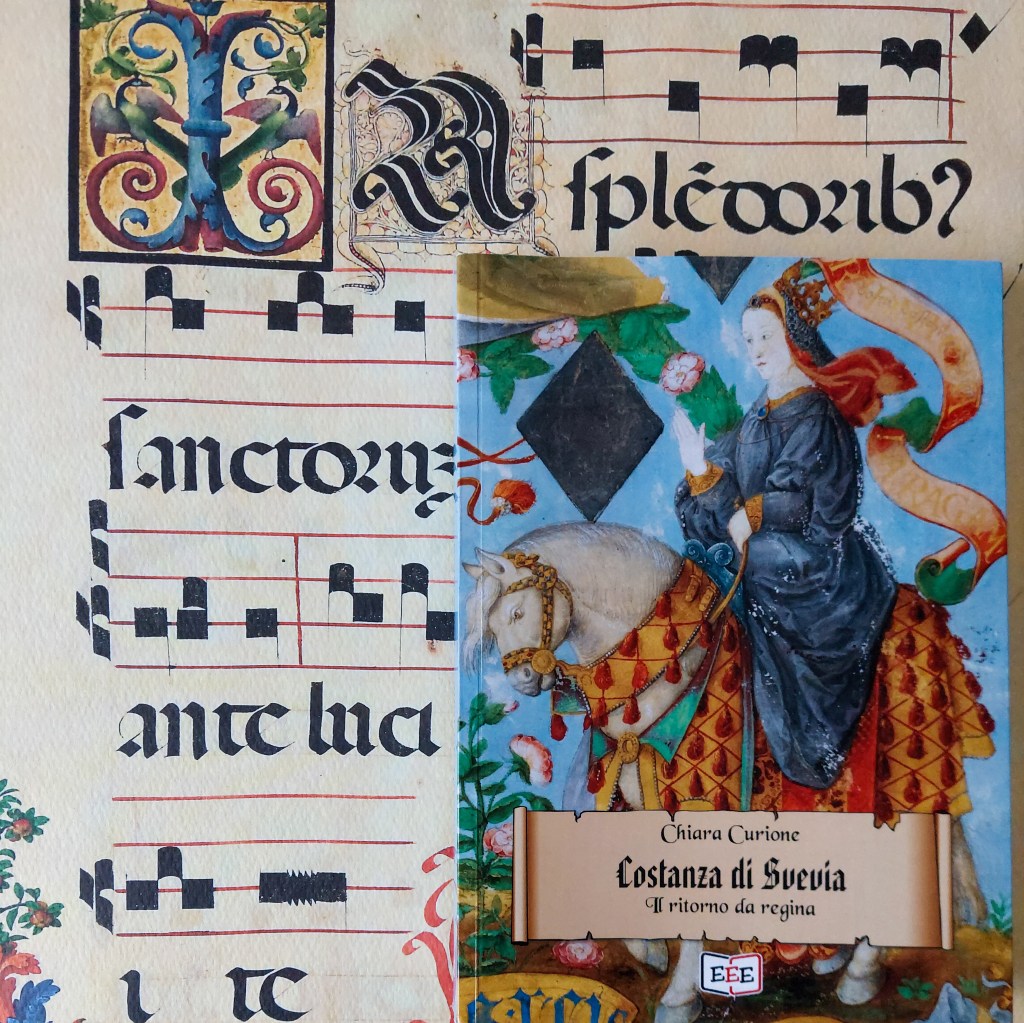 IN
splēdorib?
sanctoruʒ
ante luci
i te
Chiara Curione
Costanza di Svevia
Il ritorno da regina
EEE